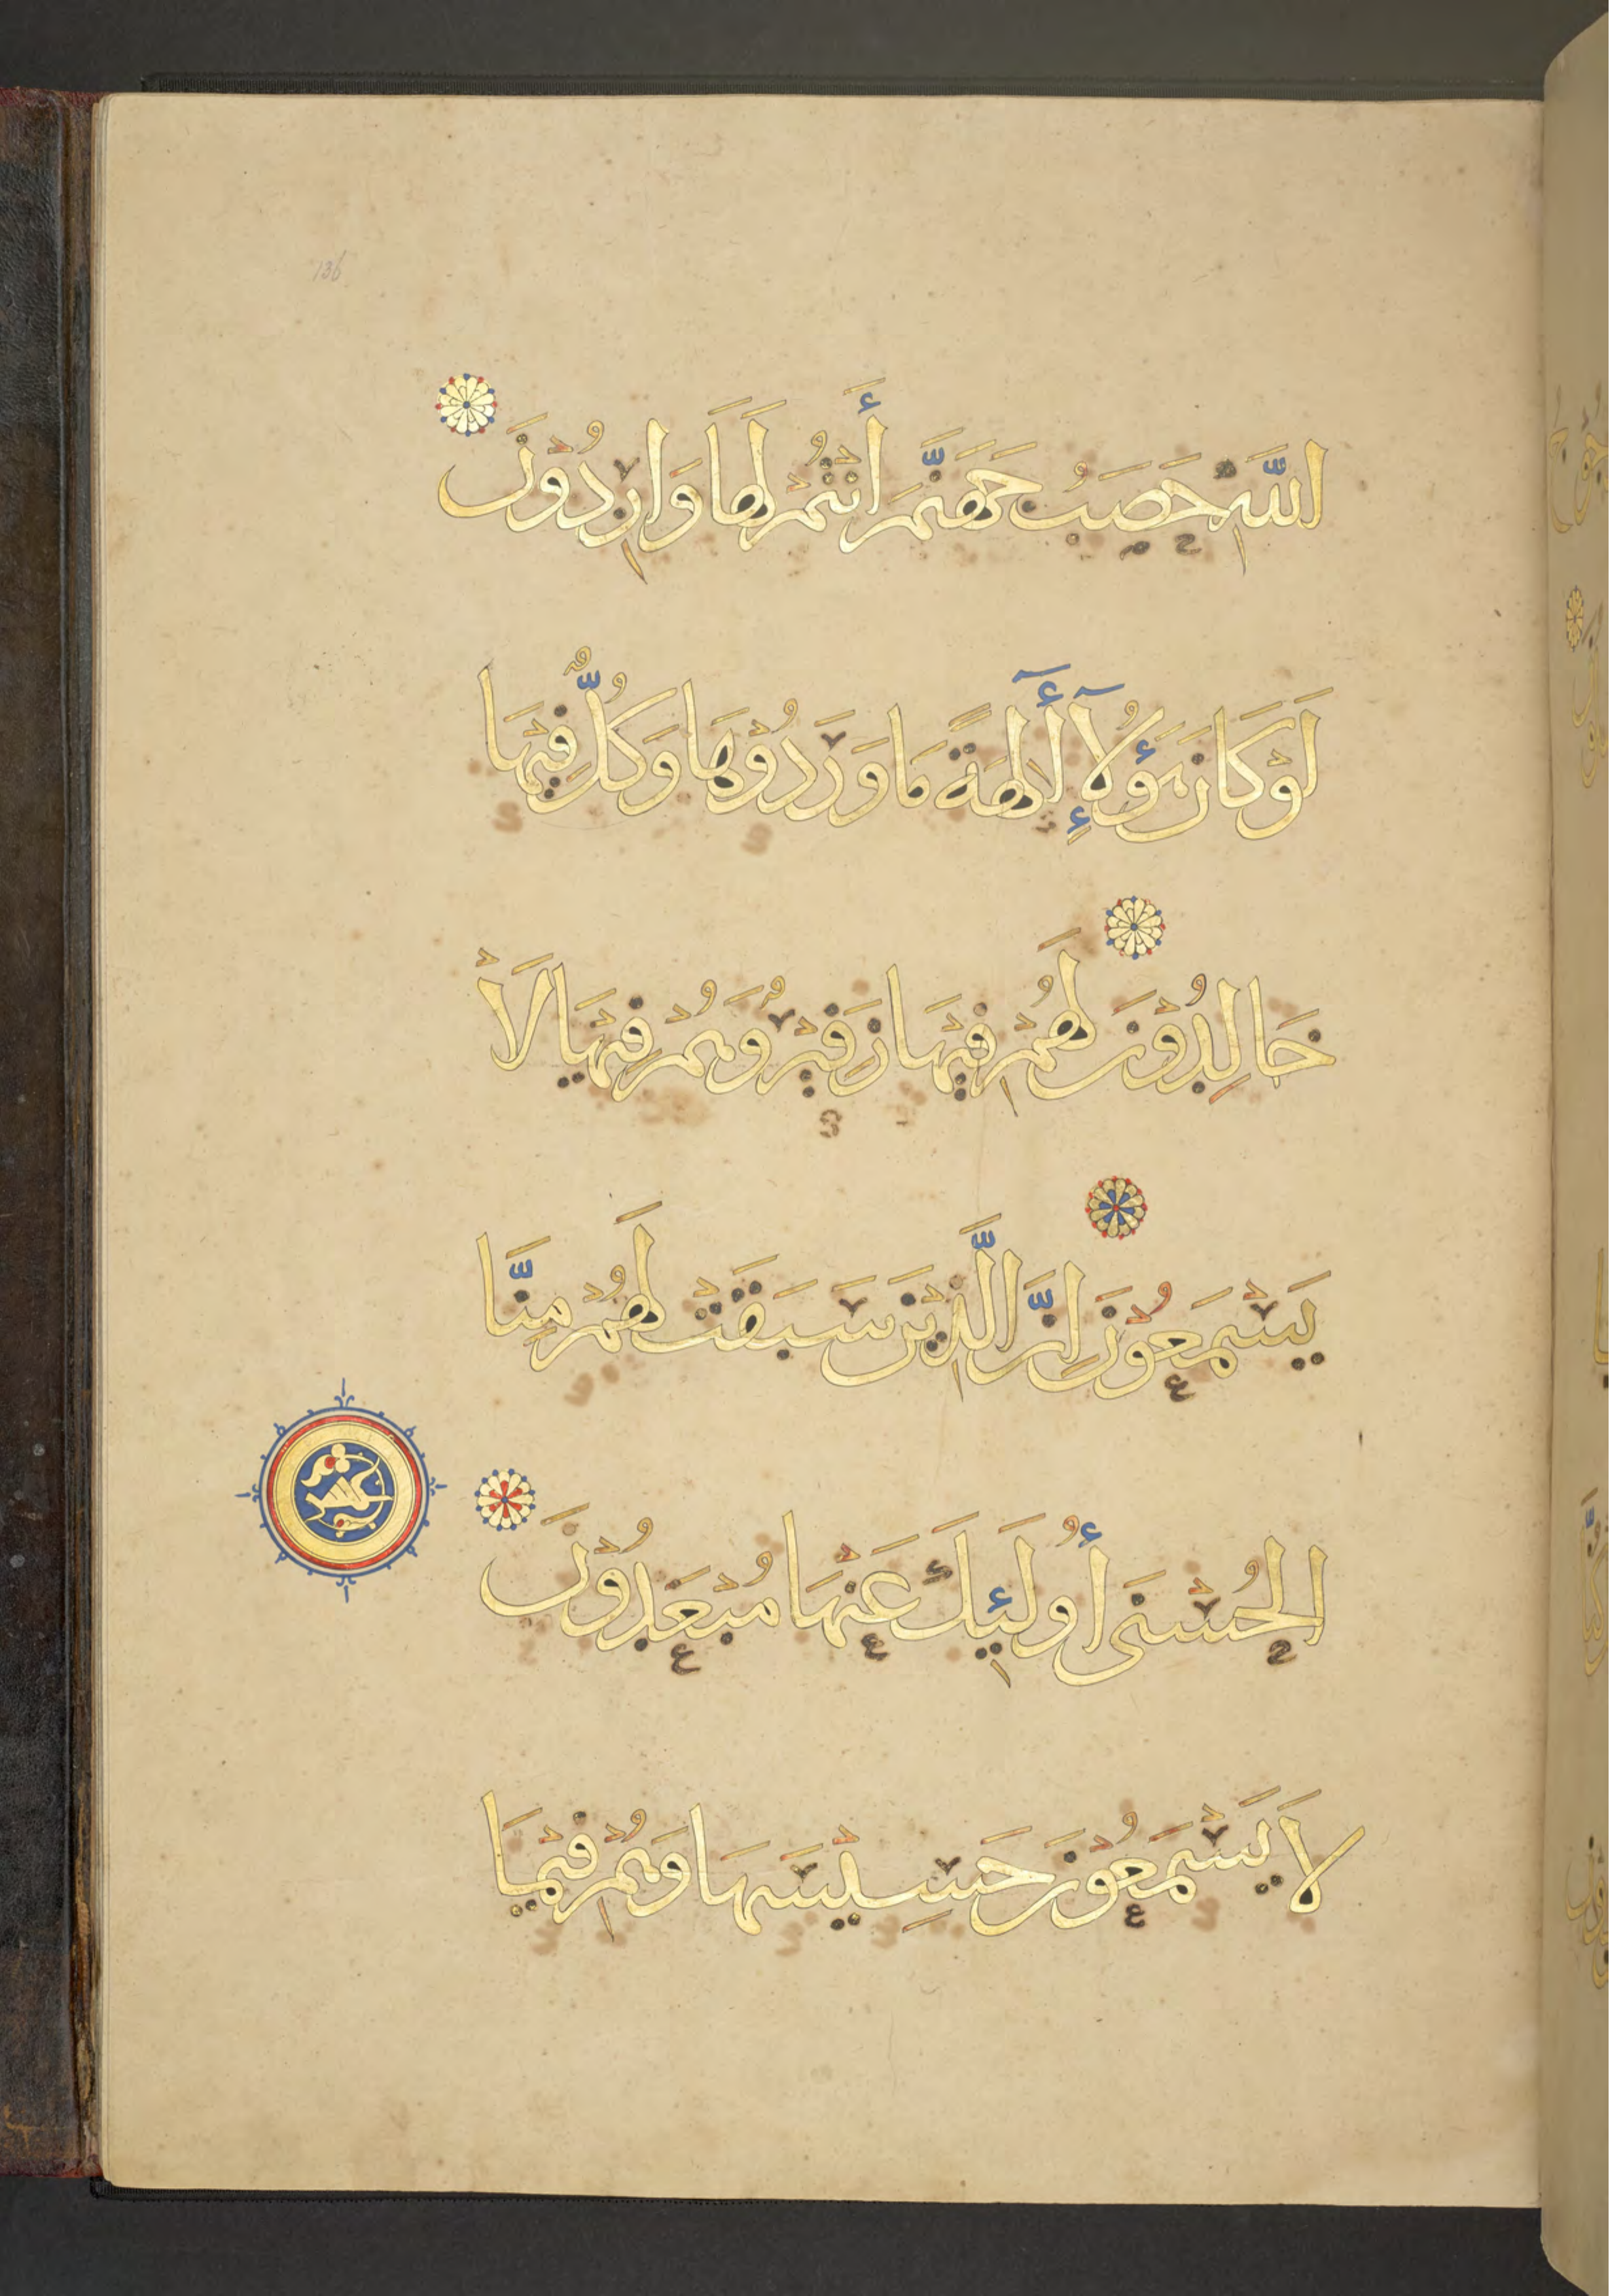 136
اللَّهِ حَصَبُ جَهَنَّمَ أَنْتُمْ لَهَا وَارِدُونَ
لَوْ كَانَ هَؤُلَآءِ أَلِهَةً مَا وَرَدُوْهَا وَكُلٌّ فِيْهَا
خَالِدُوْنَ لَهُمْ فِيْهَا زَفِيْرٌ وَهُمْ فِيْهَا لَاْ
يَسْمَعُوْنَ إِنَّ الَّذِيْنَ سَبَقَتْ لَهُمْ مِنَّا
الْحُسْنَى أُولَئِكَ عَنْهَا مُبْعَدُوْنَ
لَا يَسْمَعُوْنَ حَسِيْسَهَا وَهُمْ فِيْمَا